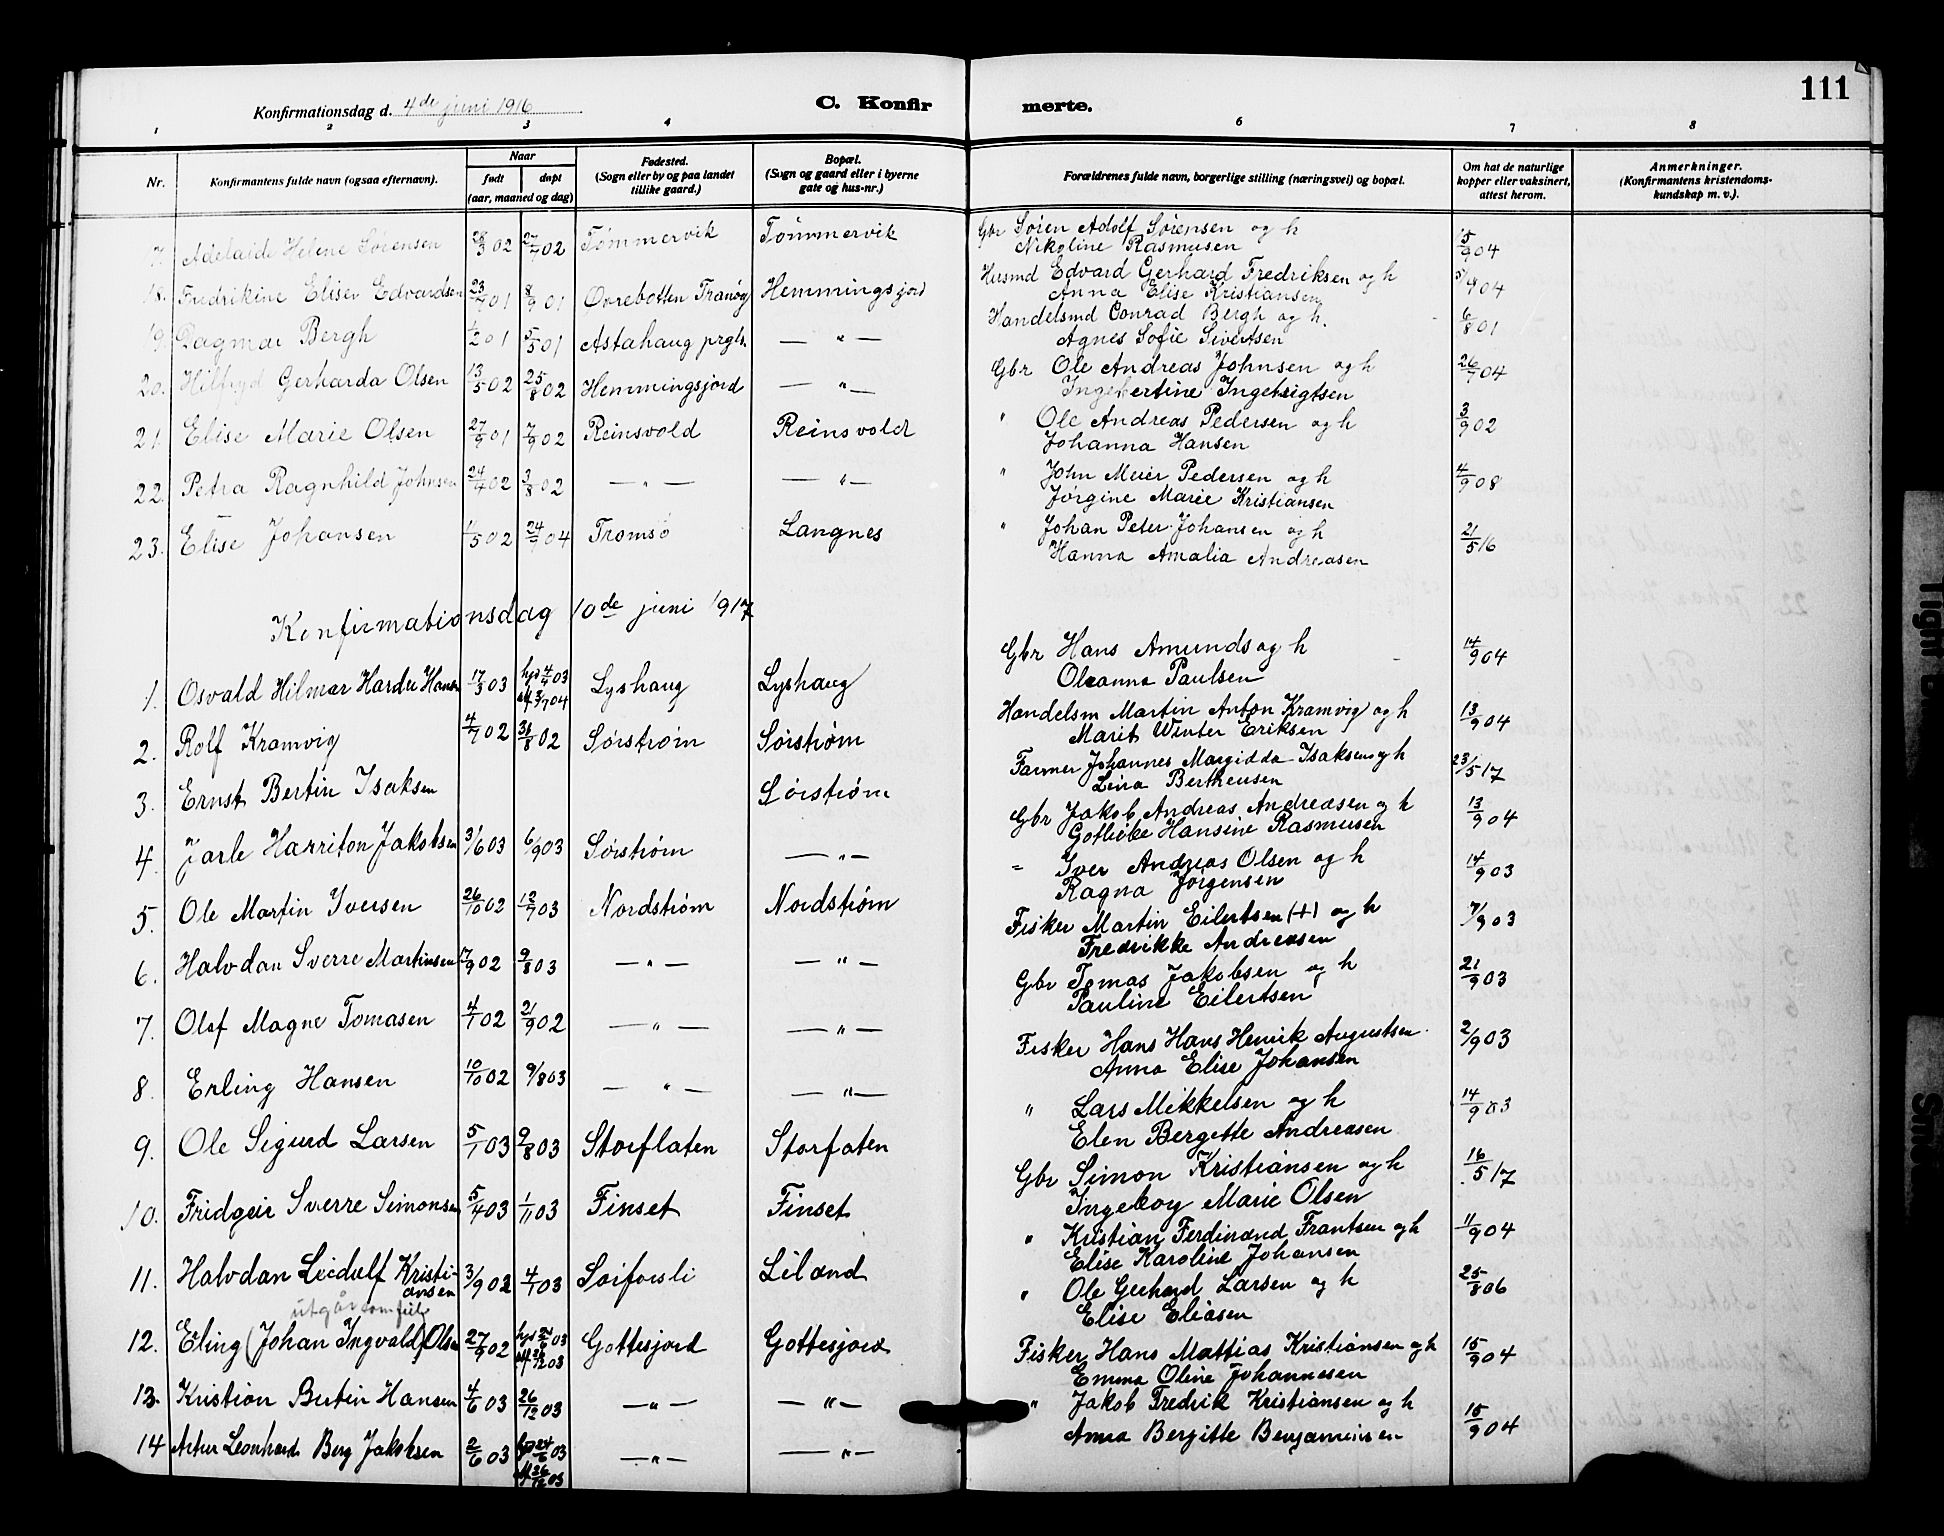 111
Konfirmationsdag d. 4de juni 1916
C. Konfir merte.
1 2 3 4 6 7 8
Nr. Konfirmantens fulde navn (ogsaa efternavn). Naar født døpt (aar, maaned og dag) Fødested. (Sogn eller by og paa landet tillike gaard.) Bopæl. (Sogn og gaard eller i byerne gate og hus-nr.) Forældrenes fulde navn, borgerlige stilling (næringsvei) og bopæl. Om hat de naturlige kopper eller vaksinert, attest herom. Anmerkninger. (Konfirmantens kristendoms- kundskap m. v.)
7. Adelaide Helene Sørensen 28/3 02 27/7 02 Tømmervik Tømmervik Gbr Søren Adolf Sørensen og h 15/9 04
Nikoline Rasmusen
18. Fredrikine Eliser Edvardsen 23/7 01 8/9 01 Ovrebotten Tranöy Hemmingsjord Husmd Edvard Gerhard Fredriksen og h 5/9 04
Anna Elise Kristiansen
19. Dagmar Bergh 1/2 01 5/5 01 Astahaug prgls. — " — Handelsmd Conrad Bergh og h. 6/8 01
Agnes Sofie Sivertsen
20. Hilfryd Gerharda Olsen 13/5 02 25/8 02 Hemmingsjord — " — Gbr Ole Andreas Johnsen og h 26/7 04
Ingebertine Ingebrigtsen
21. Elise Marie Olsen 27/9 01 7/9 02 Reinsvold Reinsvold " Ole Andreas Pedersen og h 3/9 02
Johanna Hansen
22. Petra Ragnhild Johnsen 24/4 02 3/8 02 — " — — " — " John Meier Pedersen og h 4/9 08
Jørgine Marie Kristiansen
23. Elise Johansen 11/5 02 24/7 04 Tromsö Langnes " Johan Peter Johansen og h 21/5 16
Hanna Amalia Andreasen
Konfirmationsdag 10de juni 1917
1. Osvald Hilmar Hardu Hansen 17/3 03 hjd 4/4 03 Lyshaug Lyshaug Gbr Hans Amunds og h 14/9 04
3/7 04 Oleanna Paulsen
2. Rolf Kramvig 4/7 02 31/8 02 Sørstrøm Sørstrøm Handelsm Martin Anton Kramvig og h 13/9 04
Marit Winter Eriksen
3. Ernst Bertin Isaksen Sørstrøm Farmer Johannes Margidda Isaksen og h 23/5 17
Lina Bertheusen
4. Jarle Harriton Jakobsen 3/6 03 6/9 03 Sørstrøm — " — Gbr Jakob Andreas Andreasen og h 13/9 04
Gotlieke Hansine Rasmusen
5. Ole Martin Iversen 26/10 02 12/7 03 Nordstrøm Nordstrøm " Iver Andreas Olsen og h 14/9 03
Ragna Jørgensen
6. Halvdan Sverre Martinsen 17/9 02 9/8 03 — " — — " — Fisker Martin Eilertsen (+) og h 7/9 03
Fredrikke Andreasen
7. Olaf Magne Tomasen 4/1 02 21/9 02 — " — — " — Gbr Tomas Jakobsen og h 21/9 03
Pauline Eilertsen
8. Erling Hansen 10/10 02 9/8 03 — " — — " — Fisker Hans Hans Henrik Augustsen 2/9 03
Anna Elise Johansen
9. Ole Sigurd Larsen 5/1 03 9/8 03 Storflaten Storfaten " Lars Mikkelsen og h 14/9 03
Elen Bergette Andreasen
10. Fridgeir Sverre Simonsen 5/4 03 1/11 03 Finset Finset Gbr Simon Kristiansen og h 16/5 17
Ingeboy Marie Olsen
11. Halvdan Leidulf Kristi- ansen 3/9 02 4/1 03 Sørforsli Liland " Kristian Ferdinand Frantsen og h 11/9 04
Elise Karoline Johansen
utgår som feil
12. Erling (Johan Ingvald) Olsen 27/9 02 Gottesjord Gottesjord " Ole Gerhard Larsen og h 25/8 06
Elise Eliasen
13. Kristian Bertin Hansen 4/6 03 26/12 03 — " — — " — Fisker Hans Mattias Kristiansen og h 15/9 04
Emma Oline Johannesen
14 Artur Leonhard Berg Jakobsen 2/6 03 hjd 24/6 03 — " — — " — " Jakob Fredrik Kristiansen og h 15/9 04
26/12 03 Anna Bergitte Benjaminsen